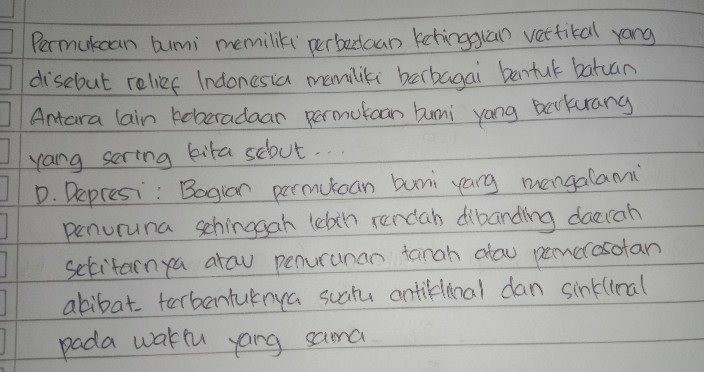 Permukaan bumi memiliki perbedaan ketinggian vertikal yang
disebut relief Indonesia memiliki berbagai bentuk batuan
Antara lain keberadaan permukaan bumi yang berkurang
yang sering kita sebut...
D. Depresi : Bagian permukaan bumi yang mengalami
penuruna sehinggah lebih rendah dibanding daerah
sekitarnya atau penurunan tanah atau pemerosotan
akibat terbentuknya suatu antiklinal dan sinklinal
pada waktu yang sama